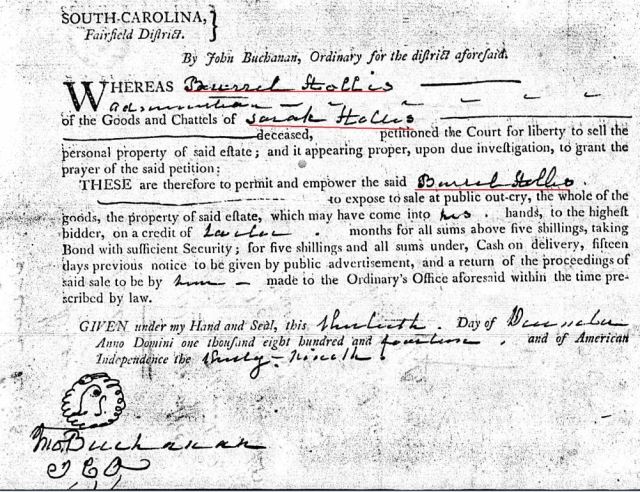 SOUTH-CAROLINA,
Fairfield District.
By John Buchanan, Ordinary for the district aforesaid.
WHEREAS Burrel Hollis
Administrator
of the Goods and Chattels of Sarah Hollis
deceased, petitioned the Court for liberty to sell the
personal property of said estate; and it appearing proper, upon due investigation, to grant the
prayer of the said petition:
THESE are therefore to permit and empower the said Burrel Hollis.
to expose to sale at public out-cry, the whole of the
goods, the property of said estate, which may have come into his. hands, to the highest
bidder, on a credit of twelve. months for all sums above five shillings, taking
Bond with sufficient Security; for five shillings and all sums under, Cash on delivery, fifteen
days previous notice to be given by public advertisement, and a return of the proceedings of
said sale to be by him — made to the Ordinary's Office aforesaid within the time pre-
scribed by law.
GIVEN under my Hand and Seal, this thirtieth. Day of December
Anno Domini one thousand eight hundred and fourteen. and of American
Independence the thirty-ninth.
L. S.
Jno. Buchanan